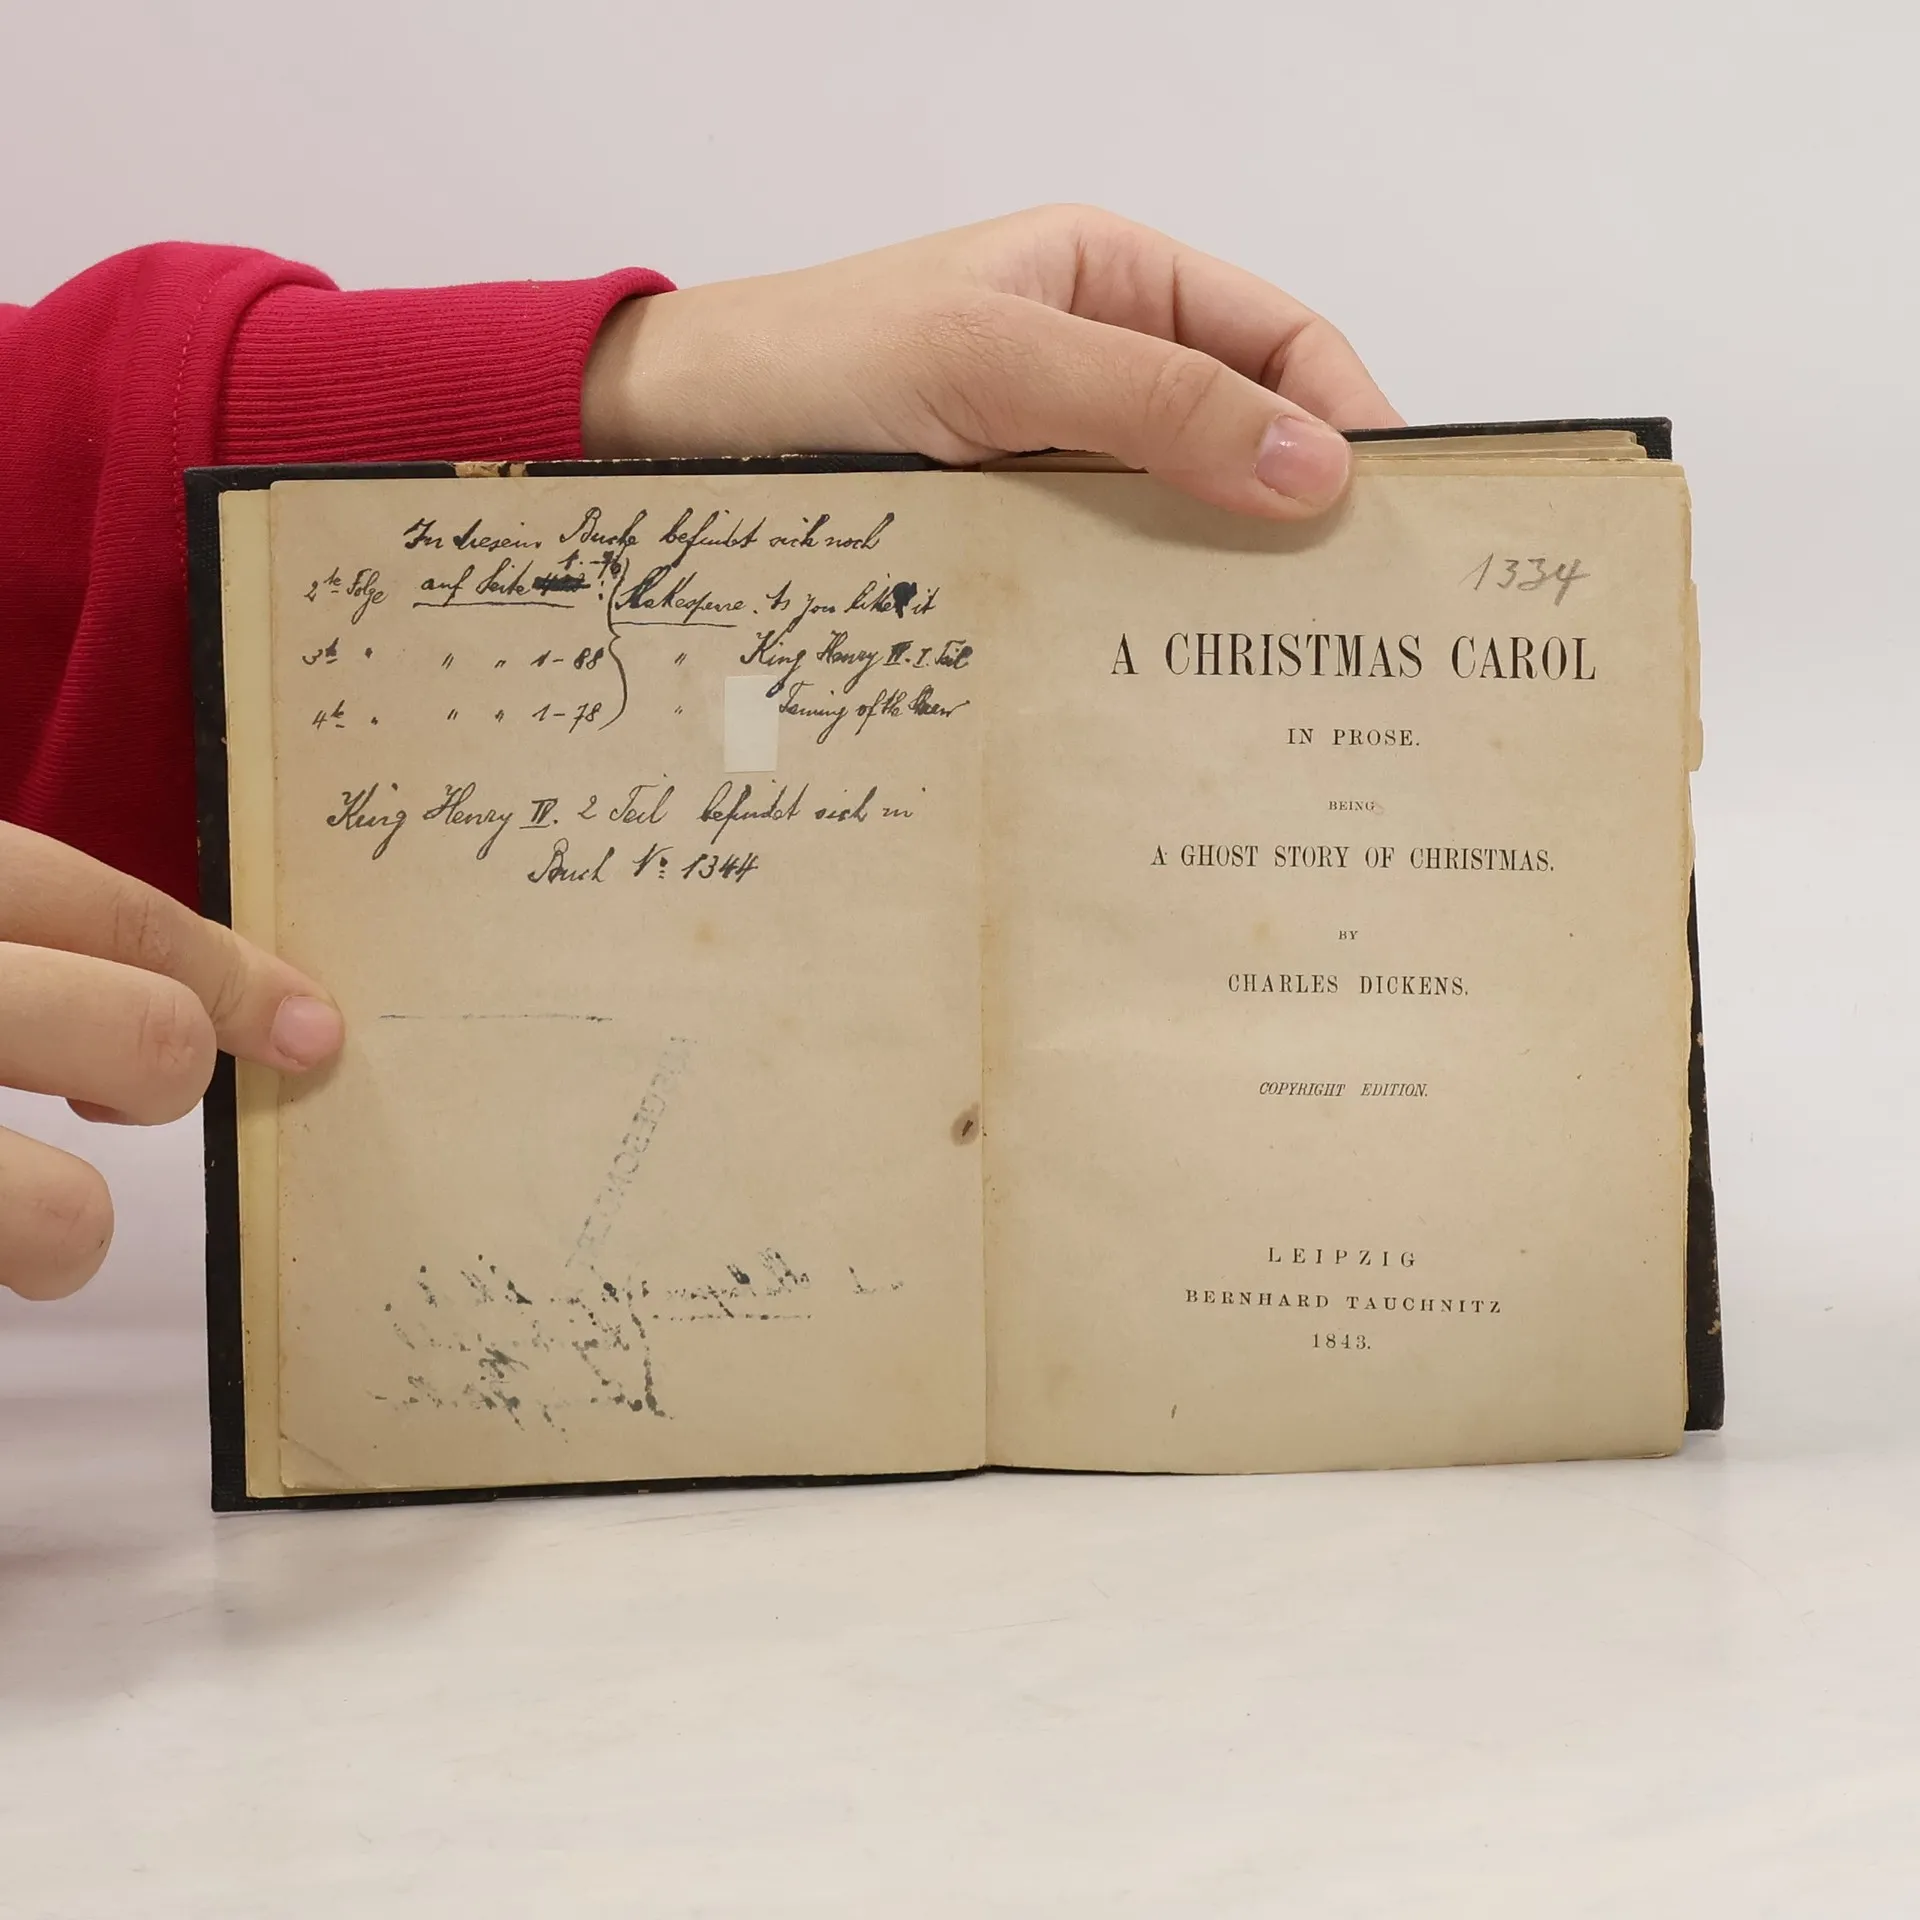 In diesem Buche befindet sich noch
1.-76
2te Folge auf Seite : Shakespeare. As you like it
3te " " " 1-88 " King Henry IV. I. Teil
4te " " " 1-78 " Taming of the Shrew
King Henry IV. 2 Teil befindet sich in
Buch No: 1344
1334
A CHRISTMAS CAROL
IN PROSE.
BEING
A GHOST STORY OF CHRISTMAS.
BY
CHARLES DICKENS.
COPYRIGHT EDITION.
LEIPZIG
BERNHARD TAUCHNITZ
1843.